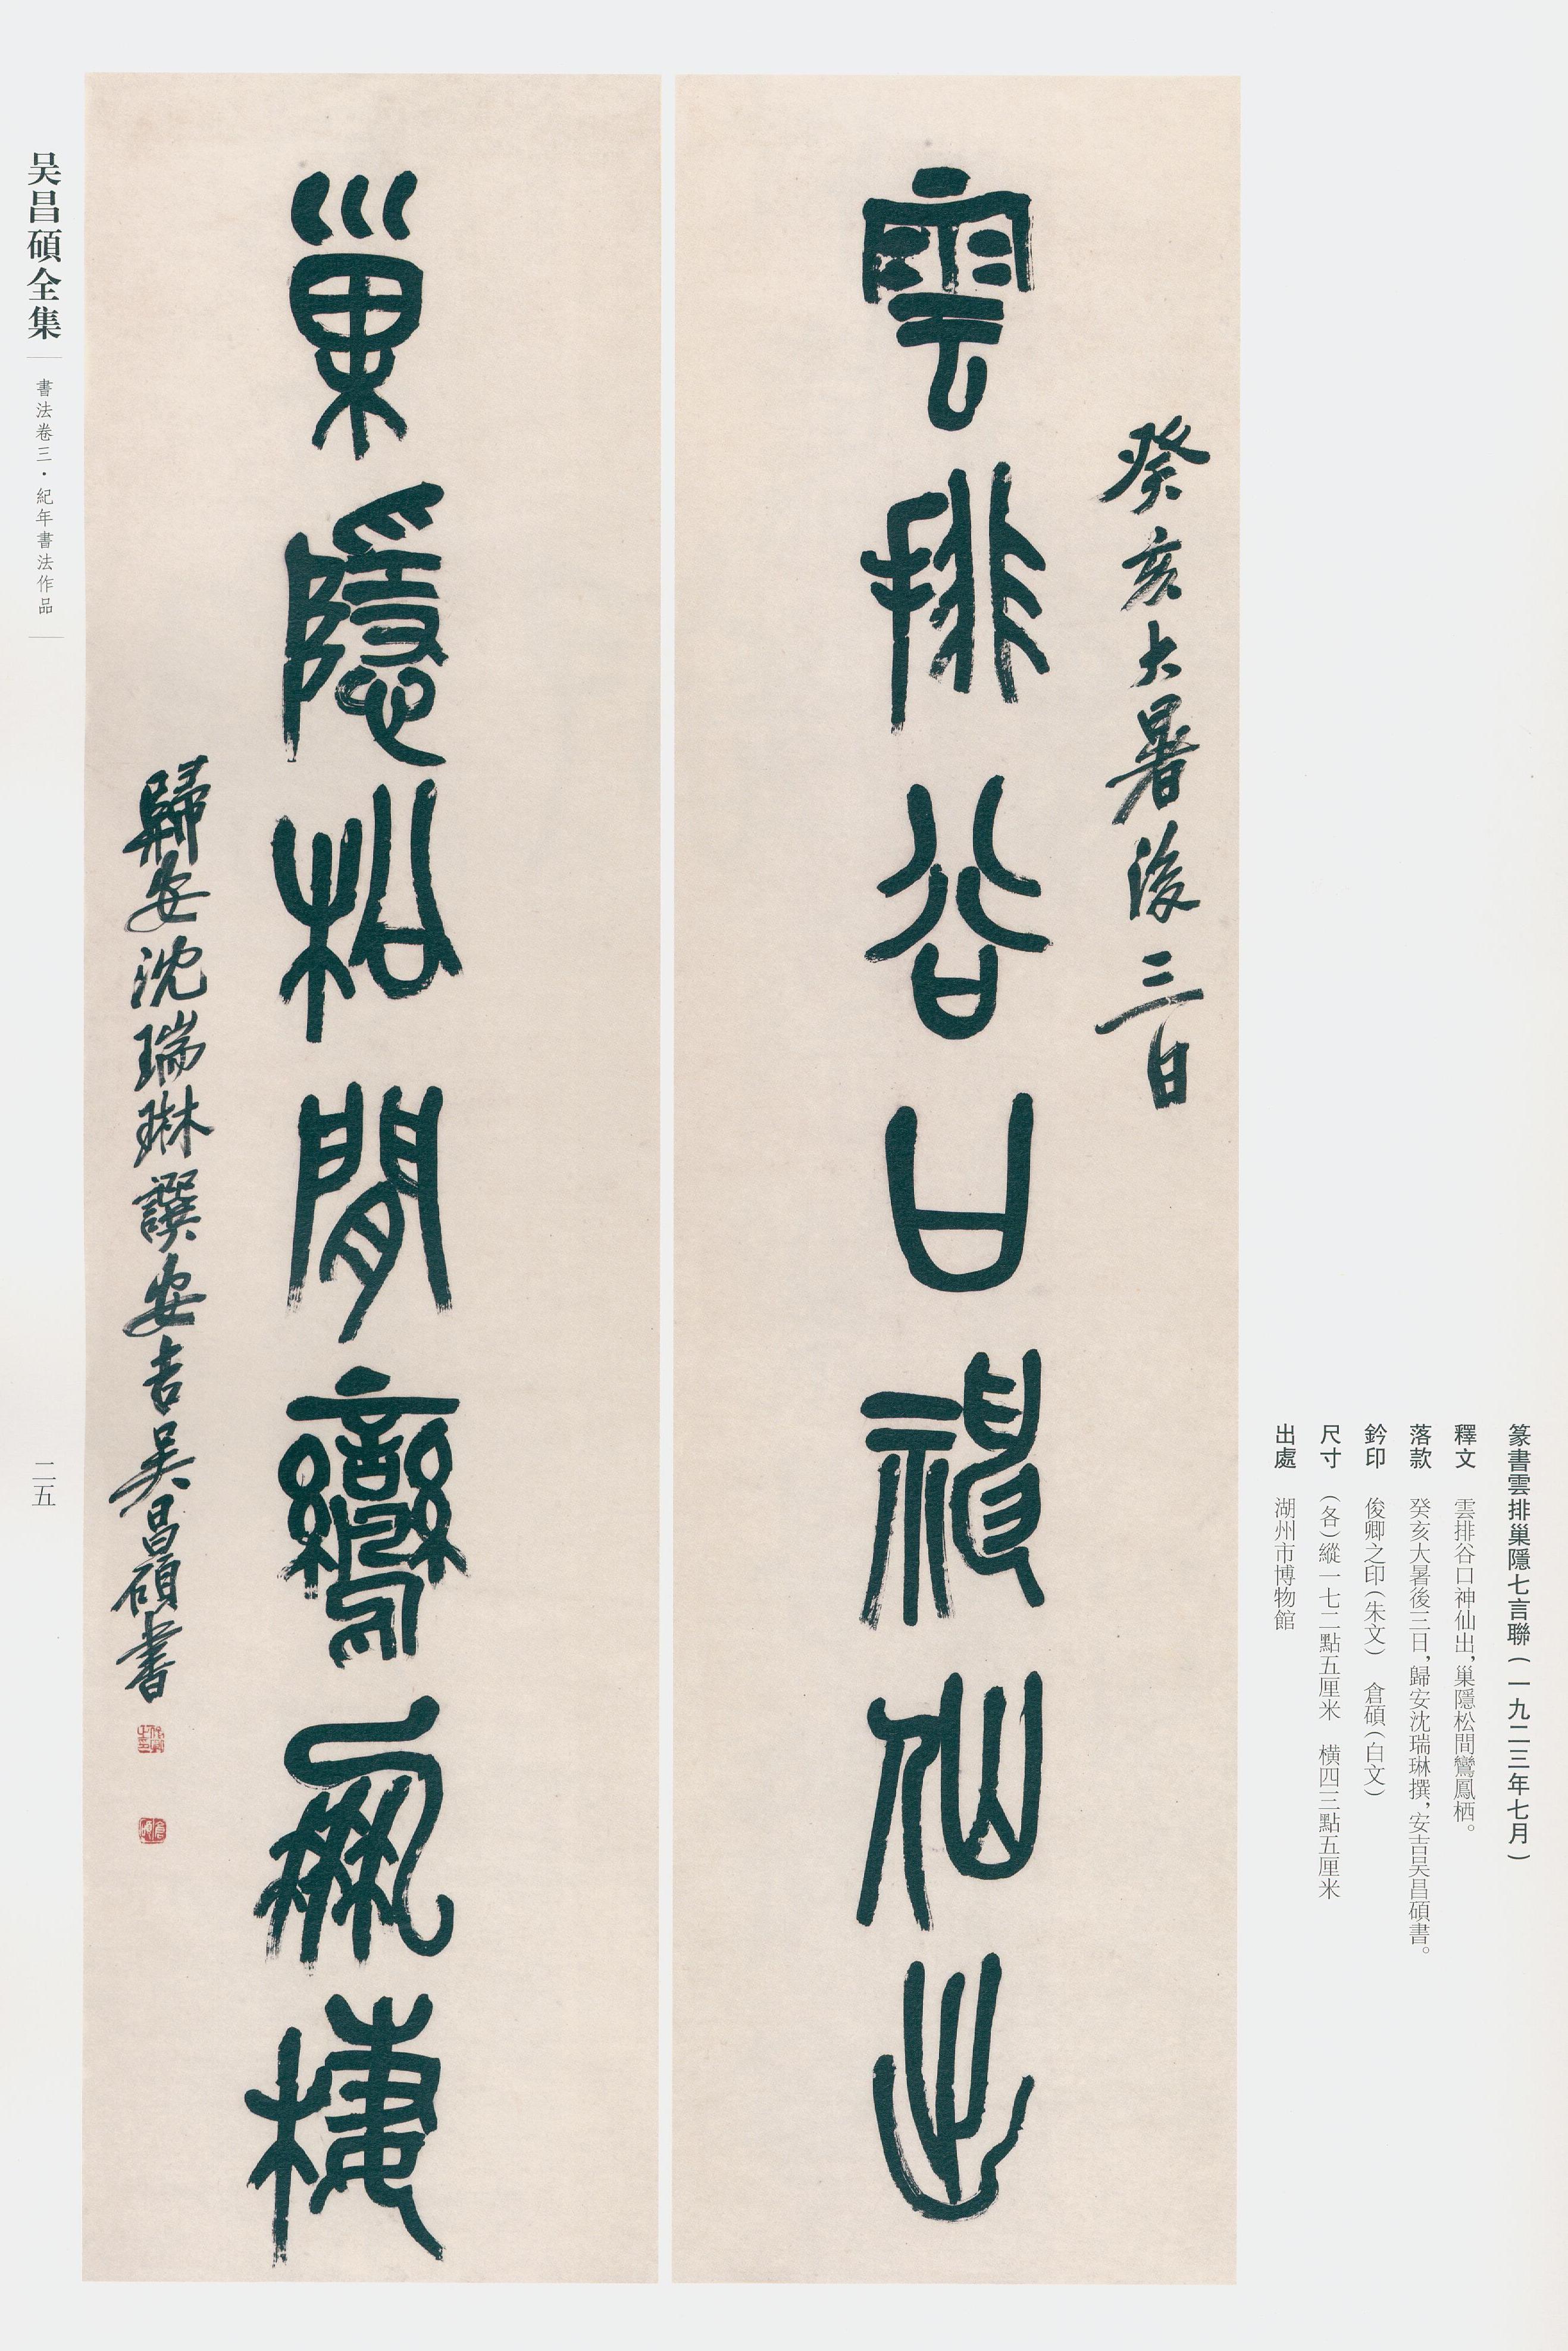 篆書雲排巢隱七言聯(一九二三年七月)
釋文 雲排谷口神仙出,巢隱松間鸞鳳栖。
落款 癸亥大暑後三日,歸安沈瑞琳撰,安吉吴昌碩書。
鈐印 俊卿之印(朱文) 倉碩(白文)
尺寸 (各)縱一七二點五厘米 橫四三點五厘米
出處 湖州市博物館
癸亥大暑後三日
雲排谷口神仙出
巢隱松閒鸞鳳棲
歸安沈瑞琳譔安吉吳昌碩書
俊卿之印
倉碩
吴昌碩全集
書法卷三·紀年書法作品
二五